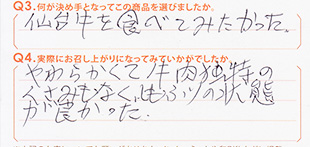 Q3.何が決め手となってこの商品を選びましたか。
仙台牛を食べてみたかった。
Q4.実際にお召し上がりになってみていかがでしたか。
やわらかくて牛肉独特の
くさみもなく、しもふりの状態
が良かった.